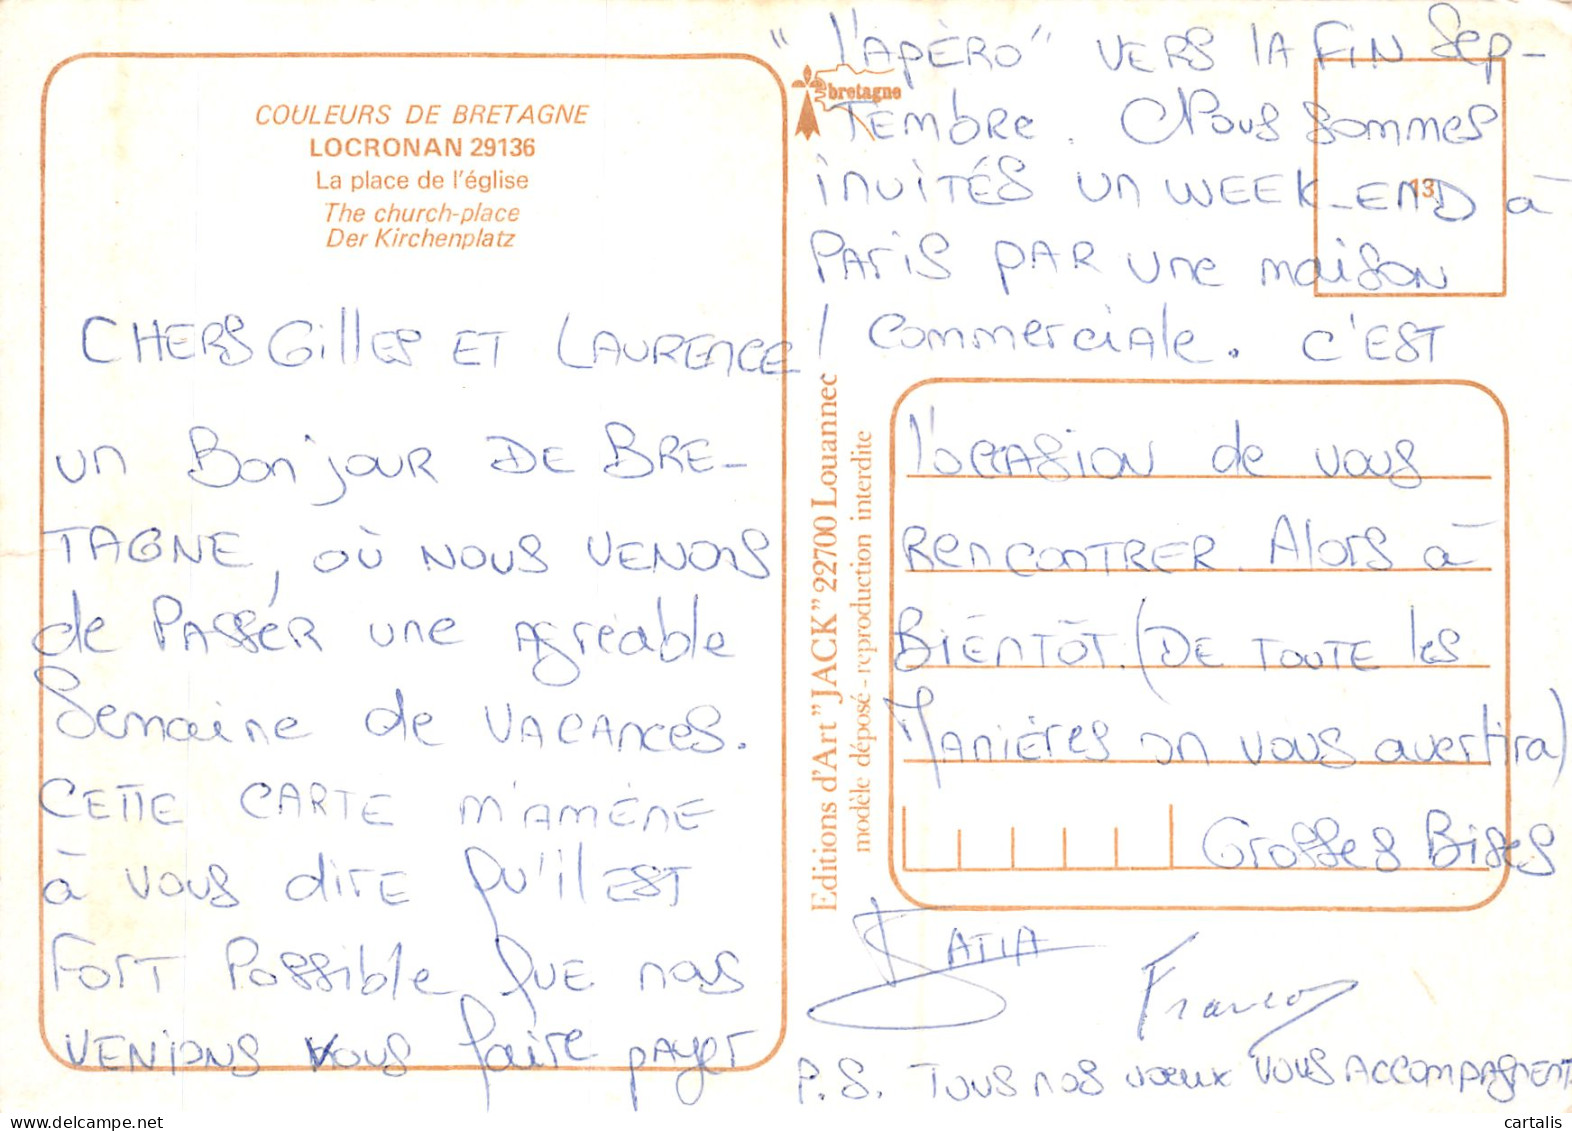 COULEURS DE BRETAGNE
LOCRONAN 29136
La place de l'église
The church-place
Der Kirchenplatz
CHERS Gilles ET LAURENCE
UN BONJOUR DE BRE-
TAGNE, OÙ NOUS VENONS
de PASSER UNE AGREABLE
SEMAINE de VACANCES.
CETTE CARTE M'AMÈNE
à VOUS dIrE QU'il EST
FORT POSSIBLE QUE nous
VENIONS VOUS faire payer
"L'APÉRO" VERS LA FIN SEP-
TEMBRE. NOUS SOMMES
INVITÉS UN WEEK-END à
PARIS PAR UNE MAISON
/ COMMERCIALE. C'EST
L'OCCASION de VOUS
RENCONTRER. Alors à
BIENTÔT. (DE TOUTE les
MANIÈRES ON VOUS avertira)
GROSSES BISES
KATIA
P.S. TOUS nos vœux VOUS ACCOMPAGNENT
bretagne
13
Editions d'Art "JACK" 22700 Louannec
modèle déposé - reproduction interdite
cartalis